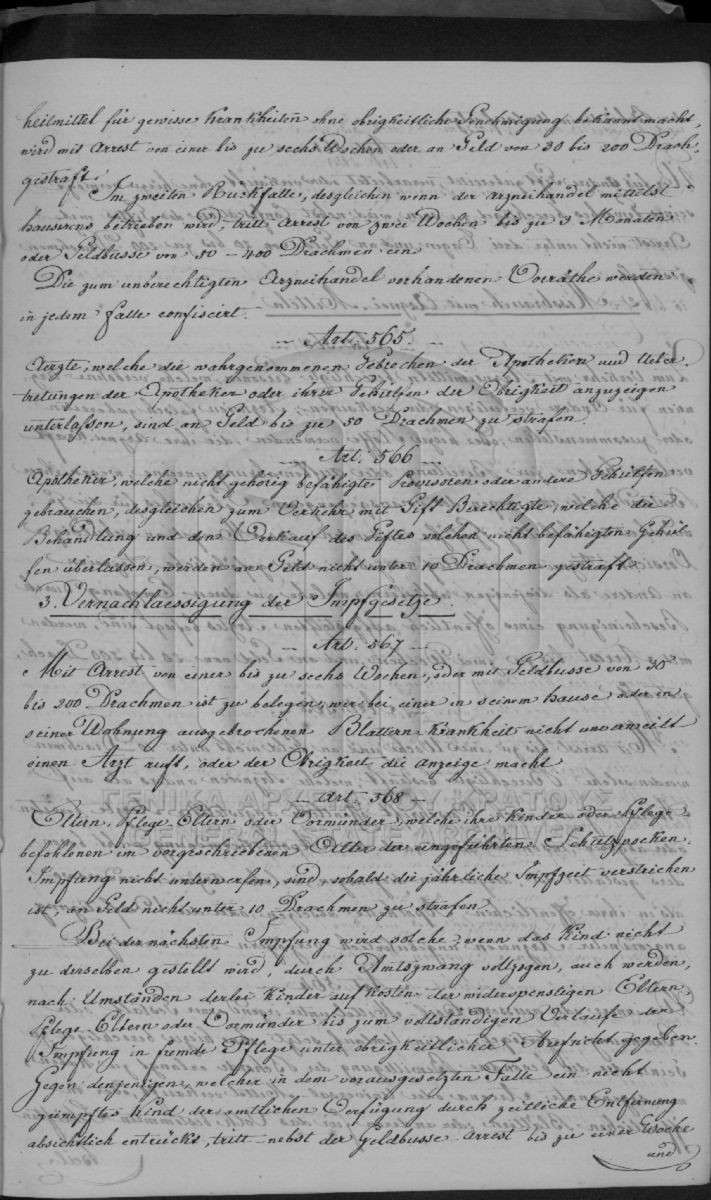 heilmittel für gewisse Krankheiten ohne obrigkeitliche Genehmigung bekannt macht,
wird mit Arrest von einer bis zu sechs Wochen oder an Geld von 30 bis 200 Drach.
gestraft.
Im zweiten Ruckfalle, desgleichen wenn der Arzneihandel mittelst
hausirens betrieben wird, tritt Arrest von zwei Wochen bis zu 3 Monaten
oder Geldbusse von 50 – 400 Drachmen ein
Die zum unberechtigten Arzneihandel vorhandenen Vorräthe werden
in jedem Falle confiscirt.
Art. 565.
Aerzte, welche die wahrgenommenen Gebrechen der Apotheken und Ueber
tretungen der Apotheker oder ihrer Gehülfen der Obrigkeit anzuzeigen
unterlassen, sind an Geld bis zu 50 Drachmen zu strafen.
Art. 566
Apotheker, welche nicht gehörig befähigte Provisoren oder andere Gehülfen
gebrauchen, desgleichen zum Verkehr mit Gift Berechtigte, welche die
Behandlung und den Verkauf des Giftes solchen nicht befähigten Gehül
fen überlassen, werden an Geld nicht unter 10 Drachmen gestraft.
3. Vernachlaessigung der Impfgesetze.
Art. 567
Mit Arrest von einer bis zu sechs Wochen, oder mit Geldbusse von 30
bis 200 Drachmen ist zu belegen, wer bei einer in seinem hause oder in
seiner Wohnung ausgebrochenen Blattern Krankheit nicht unverweilt
einen Arzt ruft, oder der Obrigkeit die anzeige macht
ΓΕΝΙΚΑ ΑΡΧΕΙΑ ΤΟΥ ΚΡΑΤΟΥΣ
GENERAL STATE ARCHIVES
Art. 568
Eltern, Pflege Eltern oder Vormünder, welche ihre Kinder oder Pflege
befohlenen im vorgeschriebenen Alter der eingeführten Schutzpocken
Impfung nicht unterwerfen, sind, sobald die jährliche Impfzeit verstrichen
ist, an Geld nicht unter 10 Drachmen zu strafen
Bei der nächsten Impfung wird solche, wenn das Kind nicht
zu derselben gestellt wird, durch Amtszwang vollzogen, auch werden,
nach Umständen derlei Kinder auf Kosten der widerspenstigen Eltern,
Pflege Eltern oder Vormünder bis zum vollständigen Verlaufe der
Impfung in fremde Pflege unter obrigkeitlicher Aufsicht gegeben.
Gegen denjenigen, welcher in dem vorausgesetzten Falle ein nicht
geimpftes Kind der amtlichen Verfügung durch zeitliche Entfernung
absichtlich entrückt, tritt nebst der Geldbusse Arrest bis zu einer Woche
und